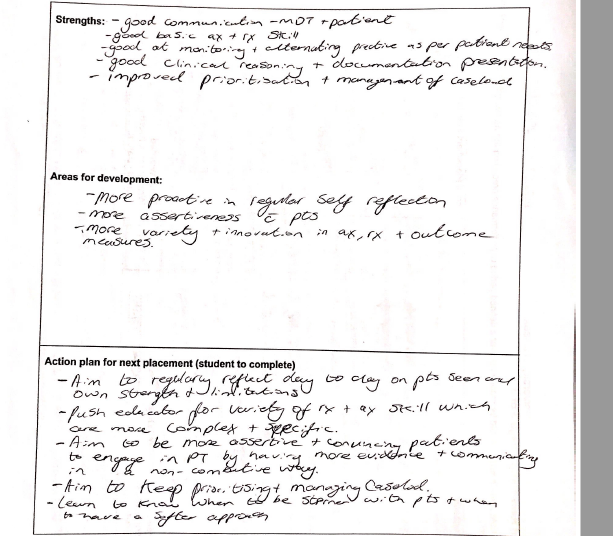 Strengths: - good communication - MDT + patient
- good basic ax + rx skill
- good at monitoring + alternating practive as per patient needs
- good clinical reasoning + documentation presentation.
- improved prioritisation + management of caseload
Areas for development:
- More proactive in regular self reflection
- more assertiveness c̄ pts
- more variety + innovation in ax, rx + outcome
measures.
Action plan for next placement (student to complete)
- Aim to regulary reflect day to day on pts seen and
own strength + limitations
- Push educator for variety of rx + ax skill which
are more complex + specific.
- Aim to be more assertive + convincing patients
to engage in PT by having more evidence + communicating
in a non-combative way.
- Aim to keep prioritising + managing caseload.
- Learn to know when to be sterner with pts + when
to have a softer approach